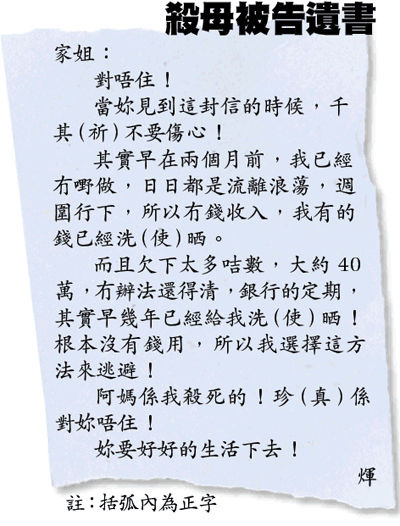 殺母被告遺書
家姐：
對唔住！
當妳見到這封信的時候，千
其(祈)不要傷心！
其實早在兩個月前，我已經
冇嘢做，日日都是流離浪蕩，週
圍行下，所以冇錢收入，我有的
錢已經洗(使)晒。
而且欠下太多咭數，大約 40
萬，冇辦法還得清，銀行的定期，
其實早幾年已經給我洗(使)晒！
根本沒有錢用，所以我選擇這方
法來逃避！
阿媽係我殺死的！珍(真)係
對妳唔住！
妳要好好的生活下去！
煇
註：括弧內為正字